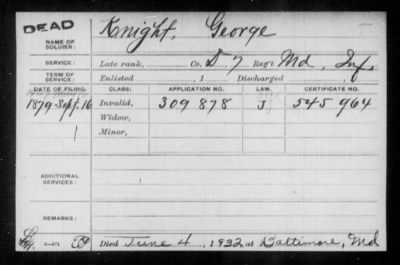 DEAD
NAME OF SOLDIER: Knight, George
SERVICE: Late rank, Co. D 7 Reg't Md. Inf.
TERM OF SERVICE: Enlisted , 1 Discharged , 1
DATE OF FILING. CLASS: APPLICATION NO. LAW. CERTIFICATE NO.
1879 Sept. 16 Invalid, 309 878 J 545 964
1 Widow,
Minor,
ADDITIONAL SERVICES:
REMARKS:
Died June 4, 1932 at Baltimore, Md